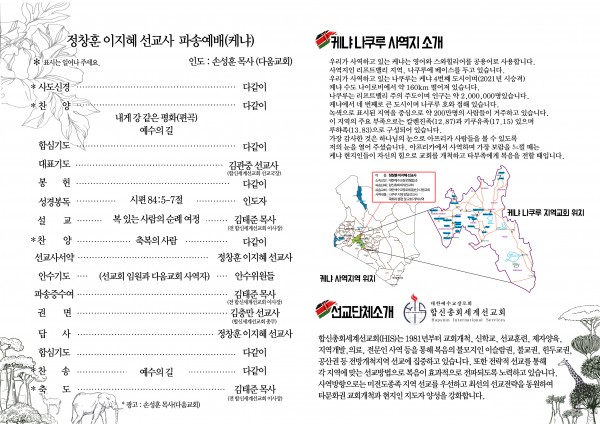 정창훈 이지혜 선교사 파송예배(케냐)
* 표시는 일어나 주세요.
인도 : 손성훈 목사 (다음교회)
* 사도신경 ………… 다같이
* 찬 양 ………… 다같이
내게 강 같은 평화(편곡)
예수의 길
합심기도 ………… 다같이
대표기도 ………… 김관중 선교사
(합신세계선교회 선교국장)
봉 헌 ………… 다같이
성경봉독 ………… 시편 84:5–7절 ………… 인도자
설 교 ………… 복 있는 사람의 순례 여정 ………… 김태준 목사
(전 합신세계선교회 이사장)
* 찬 양 ………… 축복의 사람 ………… 다같이
선교사서약 ………… 정창훈 이지혜 선교사
안수기도 …… (선교회 임원과 다음교회 사역자) …… 안수위원들
파송증수여 ………… 김태준 목사
(전 합신세계선교회 이사장)
권 면 ………… 김충만 선교사
(합신세계선교회 총무)
답 사 ………… 정창훈 이지혜 선교사
합심기도 ………… 다같이
* 찬 송 ………… 예수의 길 ………… 다같이
* 축 도 ………… 김태준 목사
(전 합신세계선교회 이사장)
* 광고 : 손성훈 목사(다음교회)
케냐 나쿠루 사역지 소개
우리가 사역하고 있는 케냐는 영어와 스와힐리어를 공용어로 사용합니다.
사역지인 리프트밸리 지역, 나쿠루에 베이스를 두고 있습니다.
우리가 사역하고 있는 나쿠루는 케냐 4번째 도시이며(2021년 시승격)
케냐 수도 나이로비에서 약 160km 떨어져 있습니다.
나쿠루는 리프트밸리 주의 주도이며 인구는 약 2,000,000명있습니다.
케냐에서 네 번째로 큰 도시이며 나쿠루 호와 접해 있습니다.
녹색으로 표시된 지역을 중심으로 약 200만명의 사람들이 거주하고 있습니다.
이 지역의 주요 부족으로는 칼렌진족(12,87)과 키쿠유족(17,15) 있으며
루하족(13,83)으로 구성되어 있습니다.
가장 감사한 것은 하나님의 눈으로 아프리카 사람들을 볼 수 있도록
저의 눈을 열어 주셨습니다. 아프리카에서 사역하며 가장 보람을 느낄 때는
케냐 현지인들이 자신의 힘으로 교회를 개척하고 타부족에게 복음을 전할 때입니다.
정창훈 이지혜 선교사
케냐 나쿠루 지역교회 위치
케냐 사역지역 위치
선교단체소개
대한예수교장로회
합신총회세계선교회
HapShin International Services
합신총회세계선교회(HIS)는 1981년부터 교회개척, 신학교, 선교훈련, 제자양육,
지역개발, 의료, 전문인 사역 등을 통해 복음의 불모지인 이슬람권, 불교권, 힌두교권,
공산권 등 전방개척지역 선교에 집중하고 있습니다. 또한 전략적 선교를 통해
각 지역에 맞는 선교방법으로 복음이 효과적으로 전파되도록 노력하고 있습니다.
사역방향으로는 미전도종족 지역 선교를 우선하고 최선의 선교전략을 동원하여
타문화권 교회개척과 현지인 지도자 양성을 강화합니다.